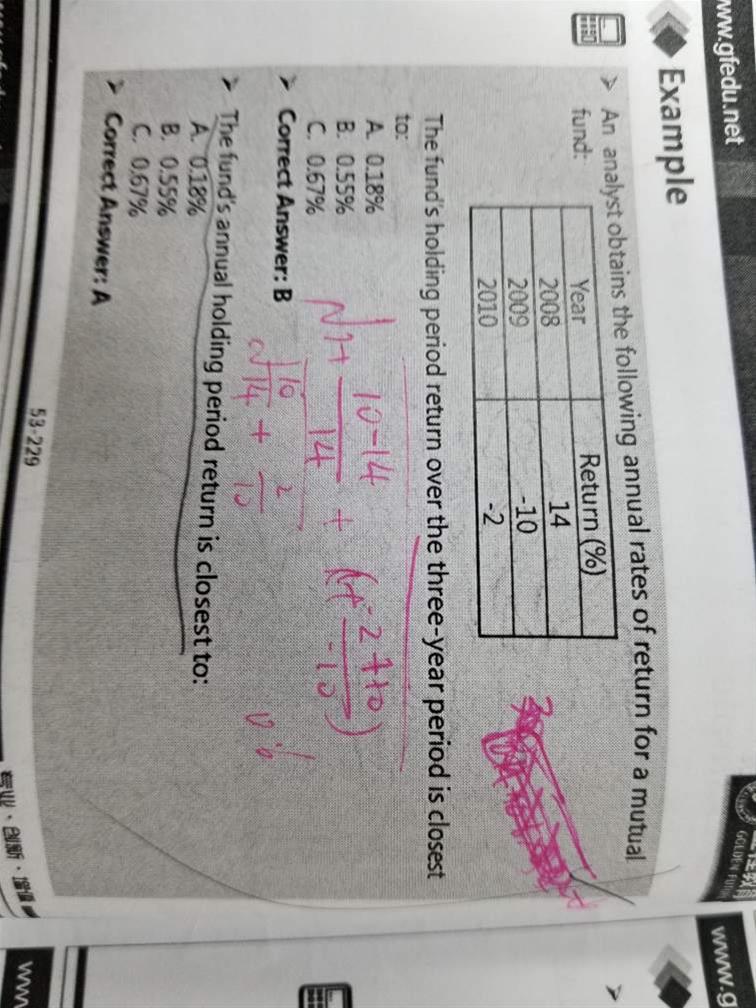 www.gfedu.net
Example
➤ An analyst obtains the following annual rates of return for a mutual
fund:
Year Return (%)
2008 14
2009 -10
2010 -2
The fund's holding period return over the three-year period is closest
to:
A. 0.18%
B. 0.55%
C. 0.67%
10-14
14
➤ Correct Answer: B
➤ The fund's annual holding period return is closest to:
A. 0.18%
B. 0.55%
C. 0.67%
➤ Correct Answer: A
53-229
专业·创新·增值
www.g
www